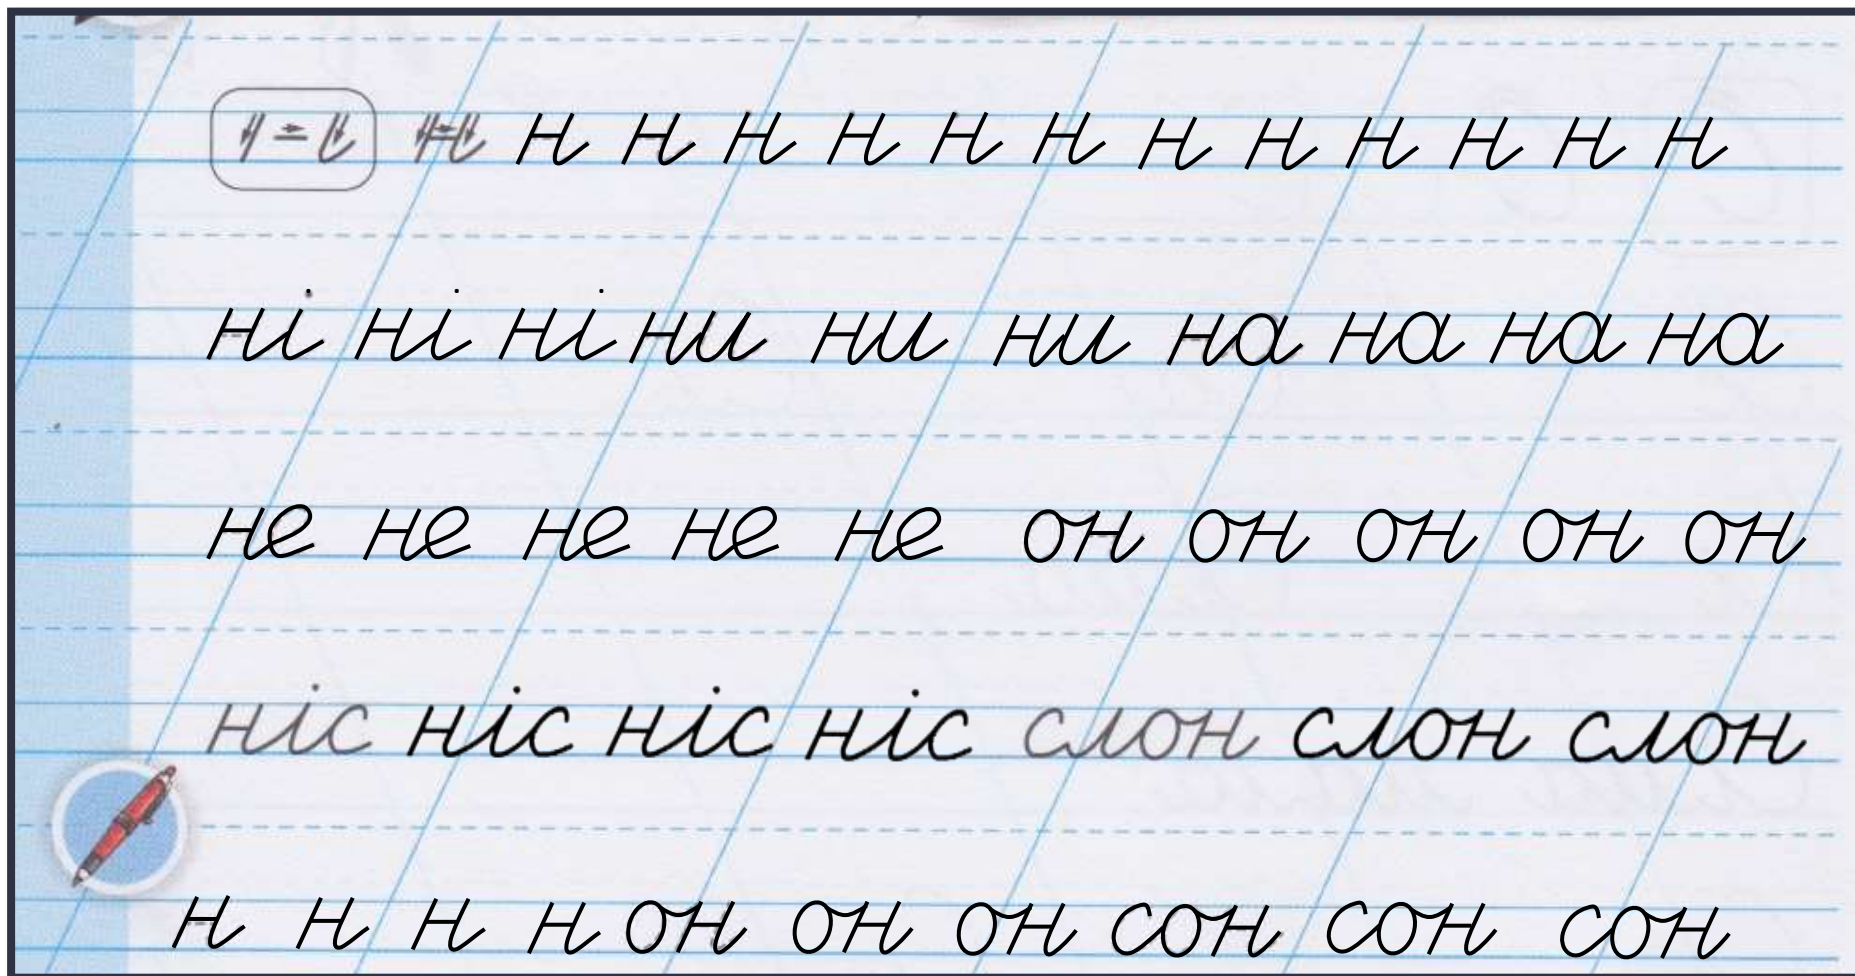 н н н н н н н н н н н н н
ні ні ні ни ни ни на на на на
не не не не не он он он он он
ніс ніс ніс ніс слон слон слон
н н н н он он он сон сон сон